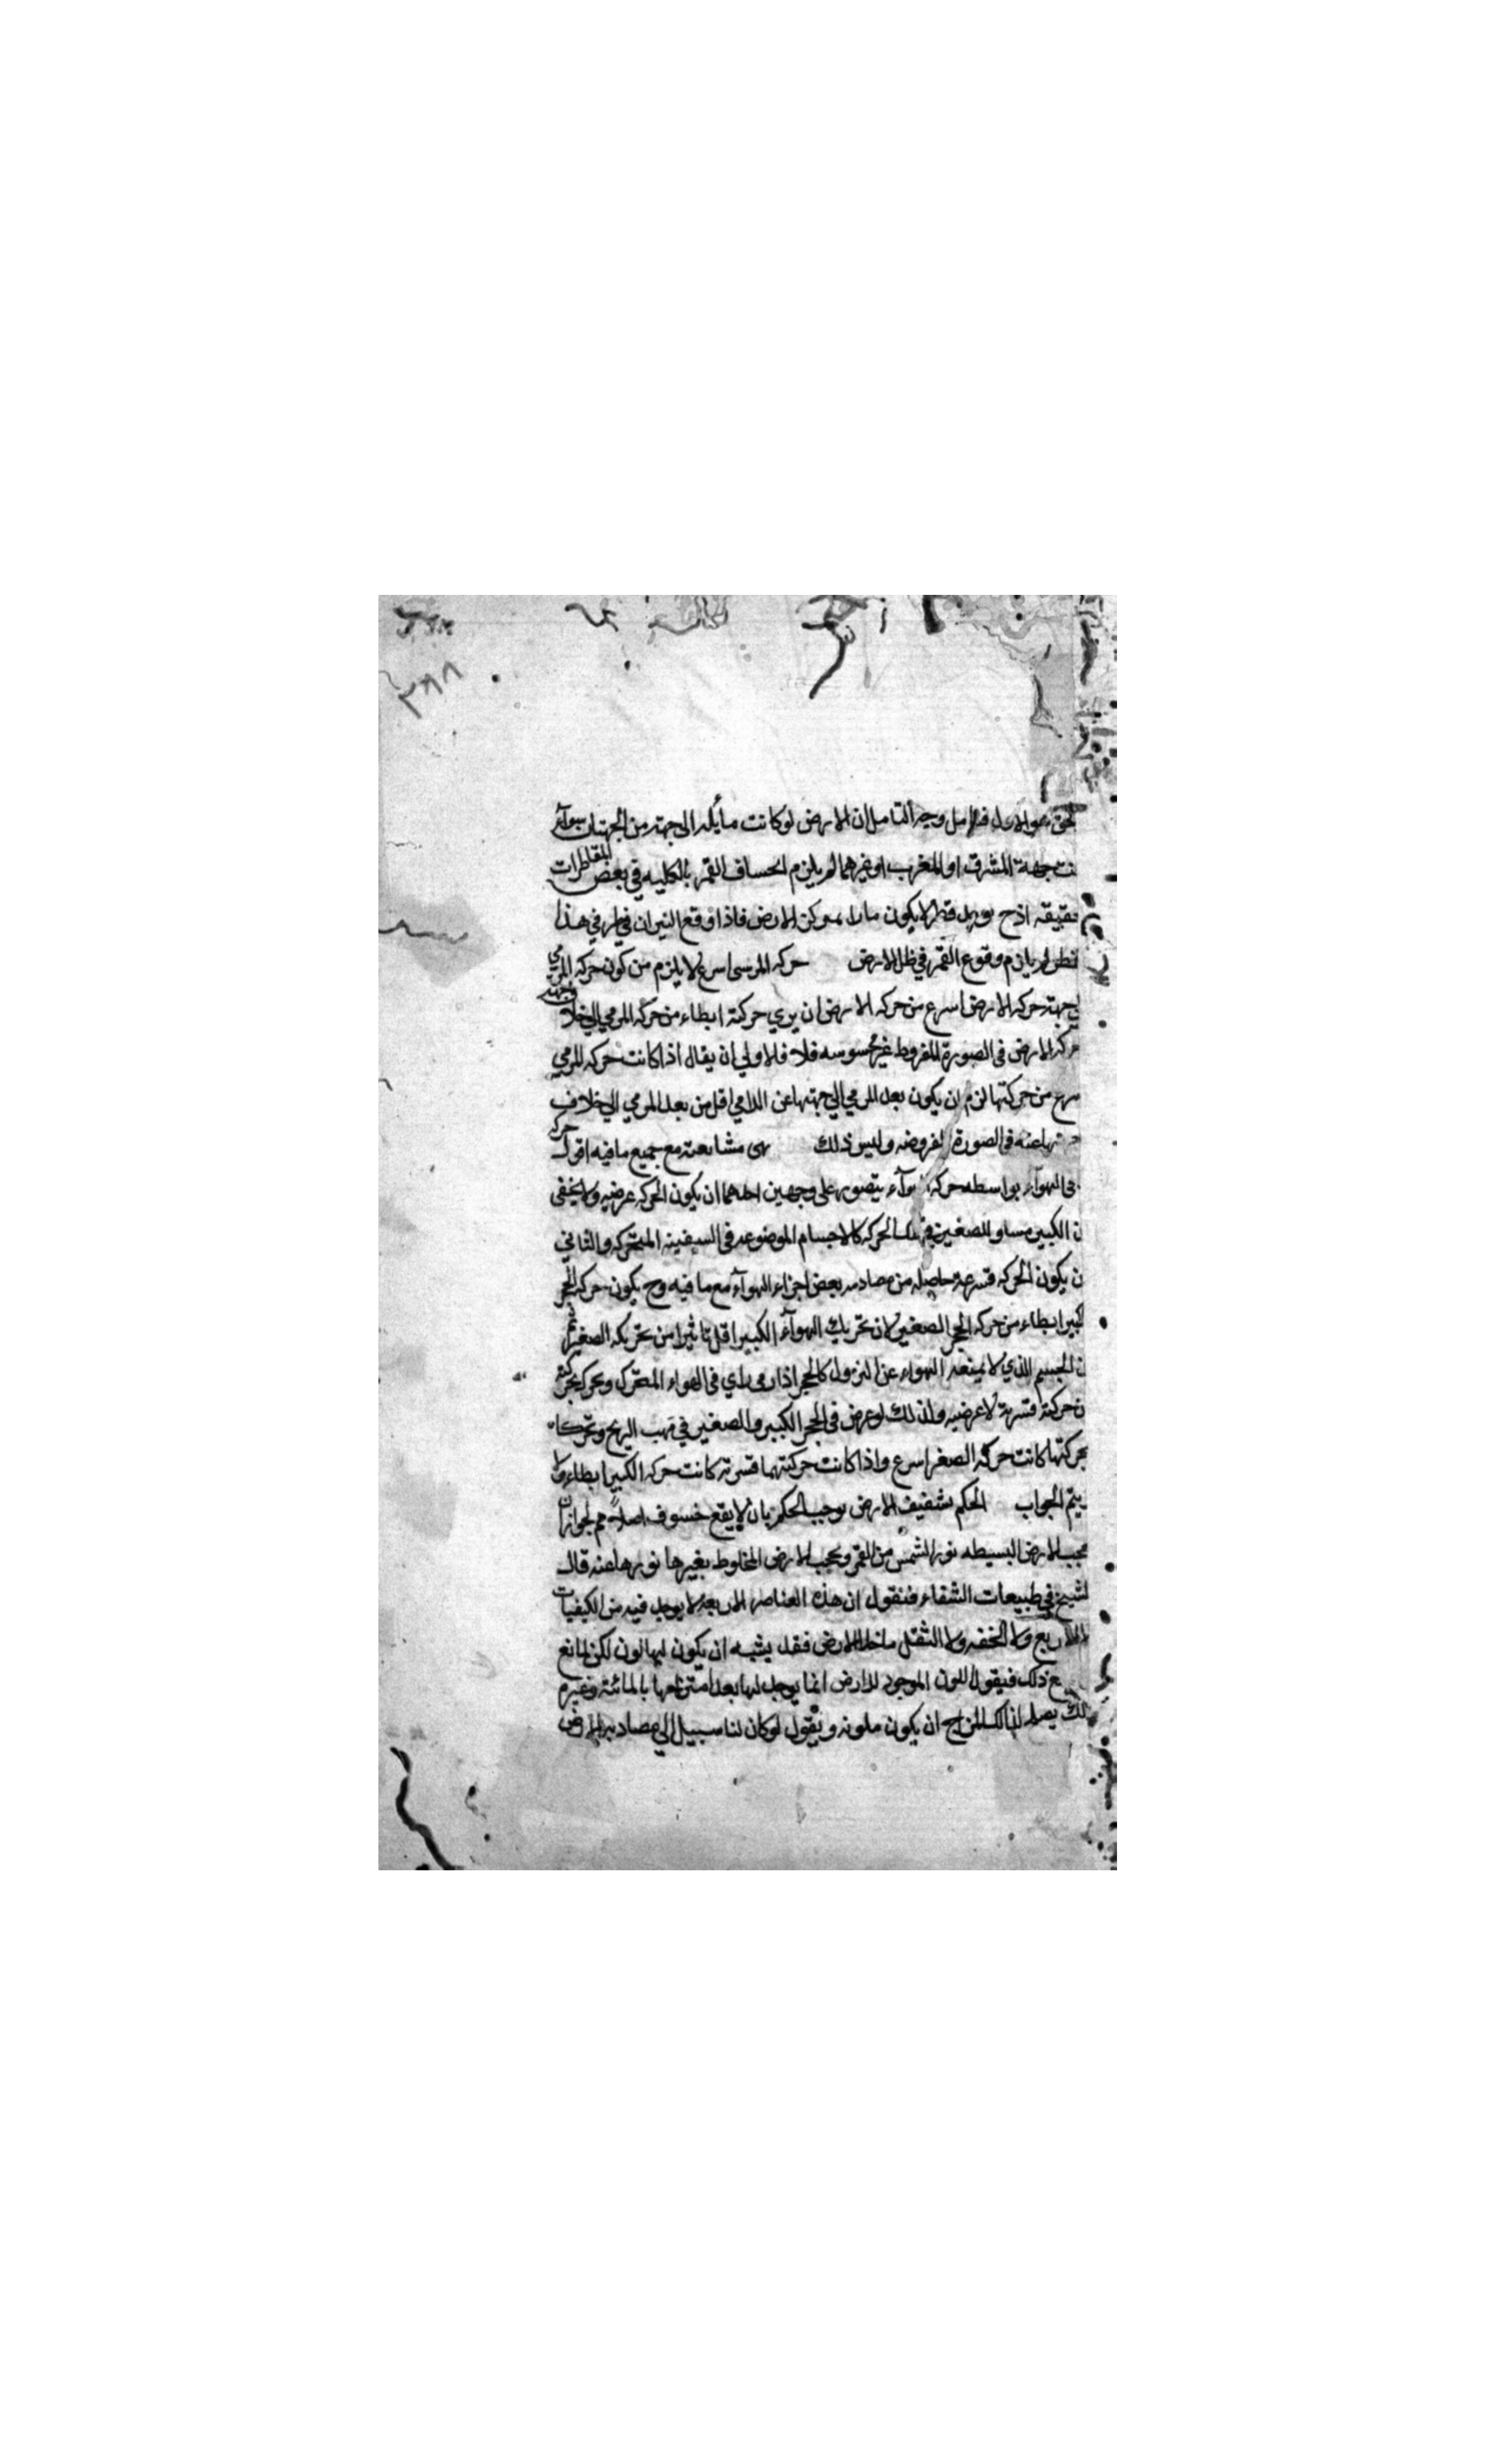 ٣٨٨
الحق هو الاول فتامل وجه التامل ان الارض لو كانت مائله الى جهة من الجهتان سوآء
نت جهة المشرق او المغرب او غيرهما لم يلزم انخساف القمر بالكليه في بعض المقاطرات
قيقه اذ ح يوجد قطر لا يكون مارا بمركز الارض فاذا وقع النيران في طرفي هذا
لقطر لم يلزم وقوع القمر في ظل الارض حركه المرمى اسرع لا يلزم من كون حركه المرمي
لى جهة حركه الارض اسرع من حركه الارض ان يري حركته ابطاء من حركه المرمي الي خلاف جهة
حركه الارض فى الصورة المفروضه غير محسوسه فلا فالاولي ان يقال اذا كانت حركه المرمي
سرع من حركتها لزم ان يكون بعد المرمي الي جهتها عن الرامي اقل من بعد المرمي الي خلاف
جهتها عنه فى الصورة المفروضه وليس ذلك مشايعته مع جميع ما فيه اقول حركه
فى الهوآء بواسطه حركه الهوآء يتصور على وجهين احدهما ان يكون الحركه عرضيه ولا يخفى
ن الكبير مساو للصغير في تلك الحركه كالاجسام الموضوعه فى السفينه المتحركه والثاني
ن يكون الحركه قسريه حاصله من مصادمه بعض اجزاء الهوآء مع ما فيه وح يكون حركه الحجر
لكبير ابطاء من حركه الحجر الصغير لان تحريك الهوآء الكبير اقل تاثيرا من تحريكه الصغير ثم
ن الجسم الذي لا يمنعه الهواء عن النزول كالحجر اذا رمى راي فى الهواء المتحرك وتحرك بحركته
ن حركته قسرية لا عرضيه ولذلك لو عرض فى الحجر الكبير والصغير في مهب الريح وتحركا
بحركتها كانت حركه الصغير اسرع واذا كانت حركتهما قسريه كانت حركه الكبير ابطاء ولا
يتم الجواب الحكم بشفيف الارض يوجب الحكم بان لا يقع خسوف اصلا مم لجواز ان
يحجب الارض البسيطه نور الشمس من القمر ويحجب الارض المخلوط بغيرها نورها عنه قال
لشيخ في طبيعات الشفاء فنقول ان هذه العناصر الاربعه لا يوجد فيه من الكيفيات
الاربع ولا الخفه ولا الثقل ما خلا الارض فقد يشبه ان يكون لها لون لكن لمانع
ع ذلك فيقول اللون الموجود للارض انما يوجد لها بعد امتزاجها بالمائية وغيره
لك يصلر لذلك المزاج ان يكون ملونه ويقول لو كان لنا سبيل الي مصادبه الارض